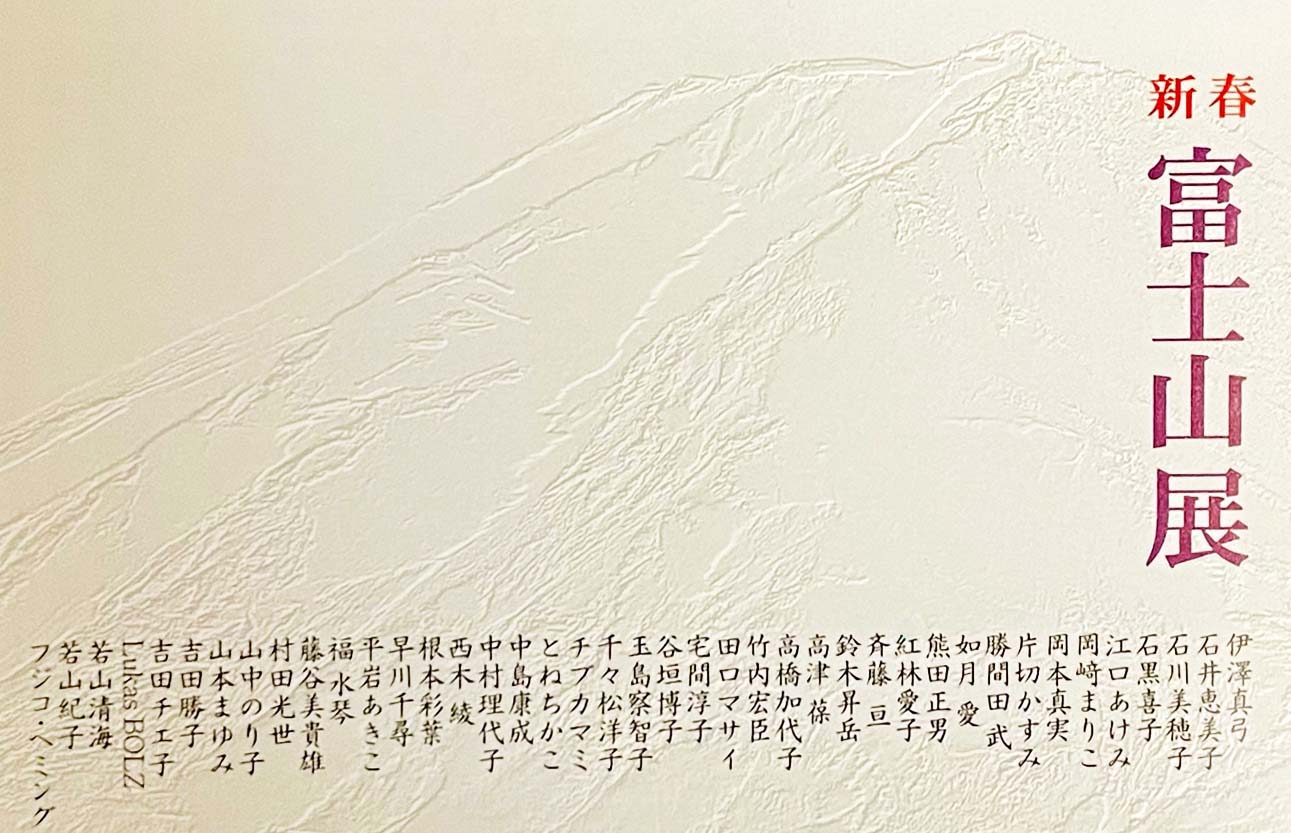 新春
富士山展
伊澤真弓
石井恵美子
石川美穂子
石黒喜子
江口あけみ
岡﨑まりこ
岡本真実
片切かすみ
勝間田 武
如月 愛
熊田正男
紅林愛子
斉藤 亘
鈴木昇岳
高津 葆
高橋加代子
竹内宏臣
田口マサイ
宅間淳子
谷垣博子
玉島察智子
千々松洋子
チブカマミ
とねちかこ
中島康成
中村理代子
西木 綾
根本彩葉
早川千尋
平岩あきこ
福水琴
藤谷美貴雄
村田光世
山中のり子
山本まゆみ
吉田勝子
吉田チエ子
Lukas BOLZ
若山清海
若山紀子
フジコ・ヘミング